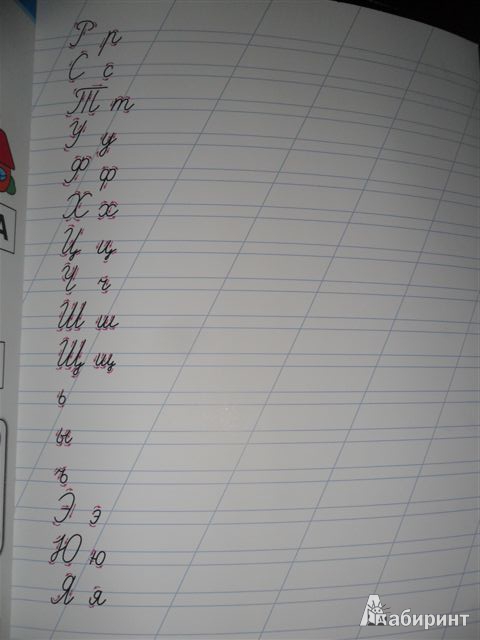 Р р
С с
Т т
У у
Ф ф
Х х
Ц ц
Ч ч
Ш ш
Щ щ
ь
ы
ъ
Э э
Ю ю
Я я
А
Лабиринт